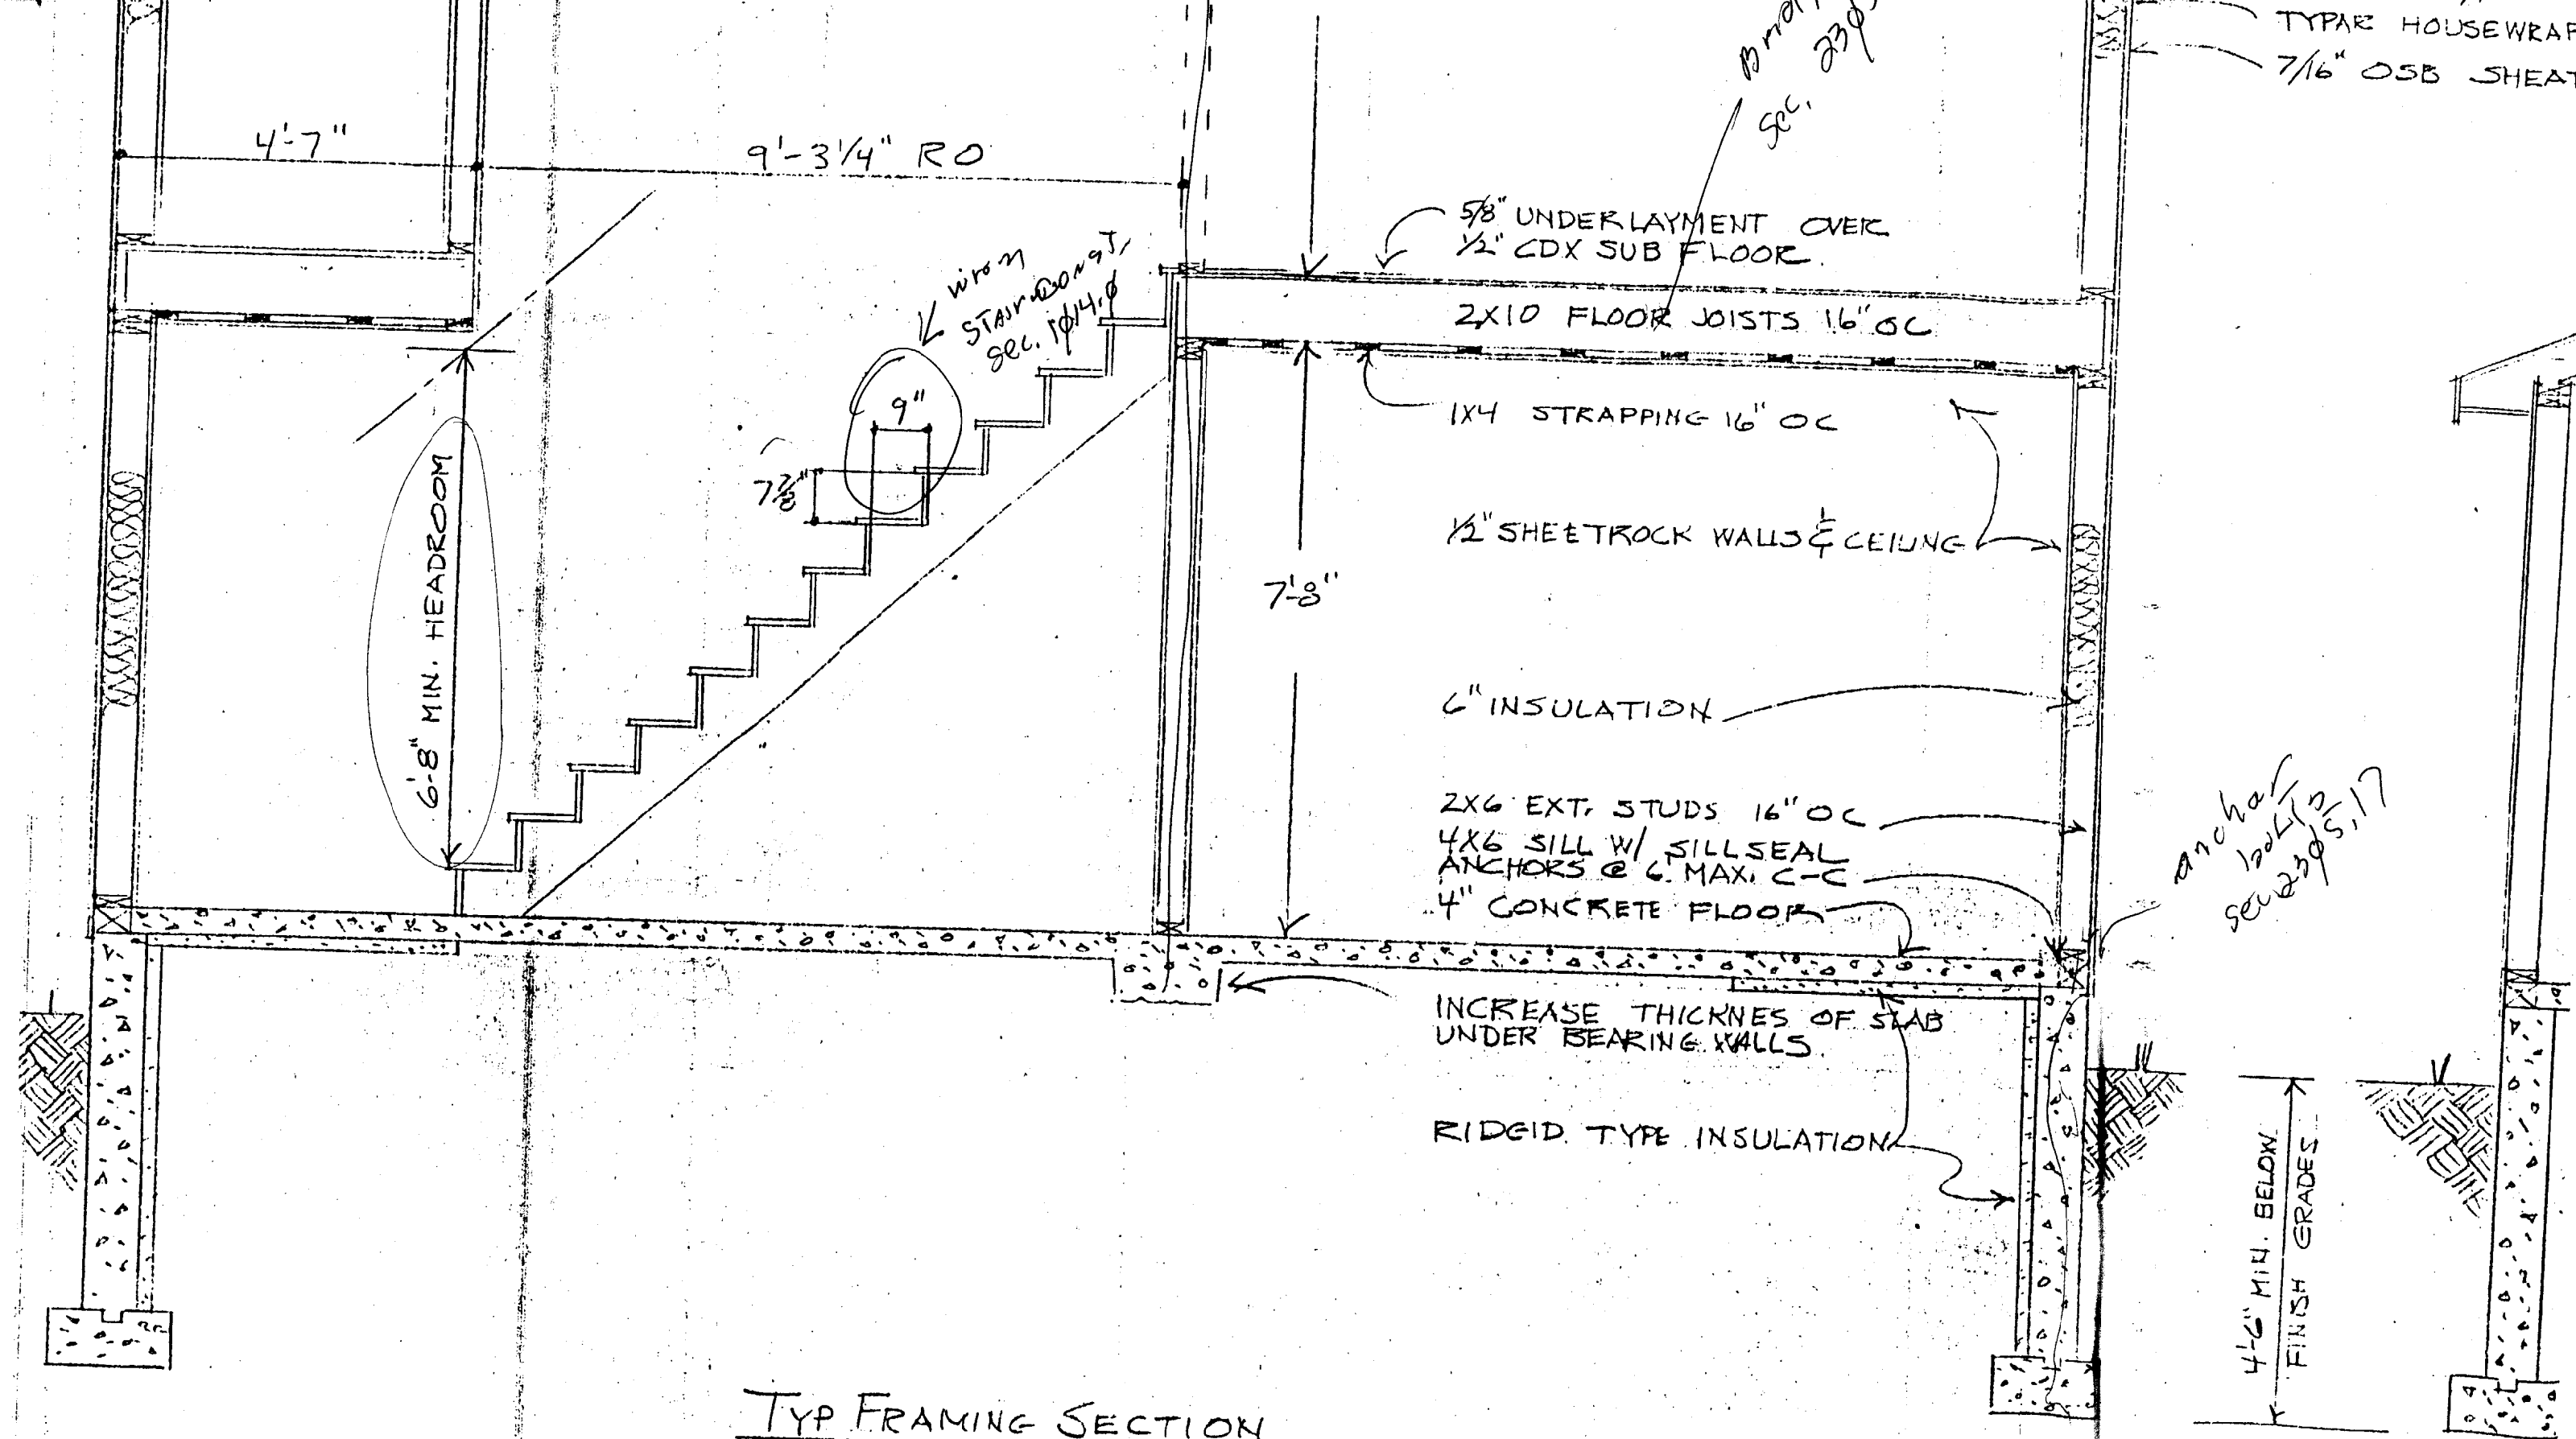 TYPAR HOUSEWRAP
7/16" OSB SHEAT
4'-7"
9'-3 1/4" RO
sec.
5/8" UNDERLAYMENT OVER
1/2" CDX SUB FLOOR
2X10 FLOOR JOISTS 16" OC
sec. 1014.0
9"
7 7/8"
1X4 STRAPPING 16" OC
6'-8" MIN. HEADROOM
1/2" SHEETROCK WALLS & CEILING
7'-8"
6" INSULATION
2X6 EXT. STUDS 16" OC
4X6 SILL W/ SILLSEAL
ANCHORS @ 6' MAX. C-C
4" CONCRETE FLOOR
anchor
bolts
sec 2305.17
INCREASE THICKNES OF SLAB
UNDER BEARING WALLS.
RIDGID TYPE INSULATION
4'-6" MIN. BELOW
FINISH GRADES
TYP FRAMING SECTION